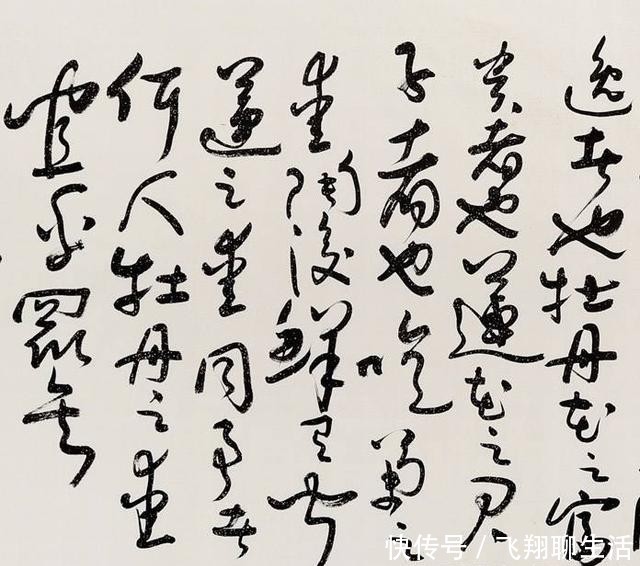 逸者也牡丹花之富
貴者也蓮花之君
子者也噫菊之
愛陶後鮮有聞
蓮之愛同予者
何人牡丹之愛
宜乎眾矣
快传号 / 飞翔聊生活